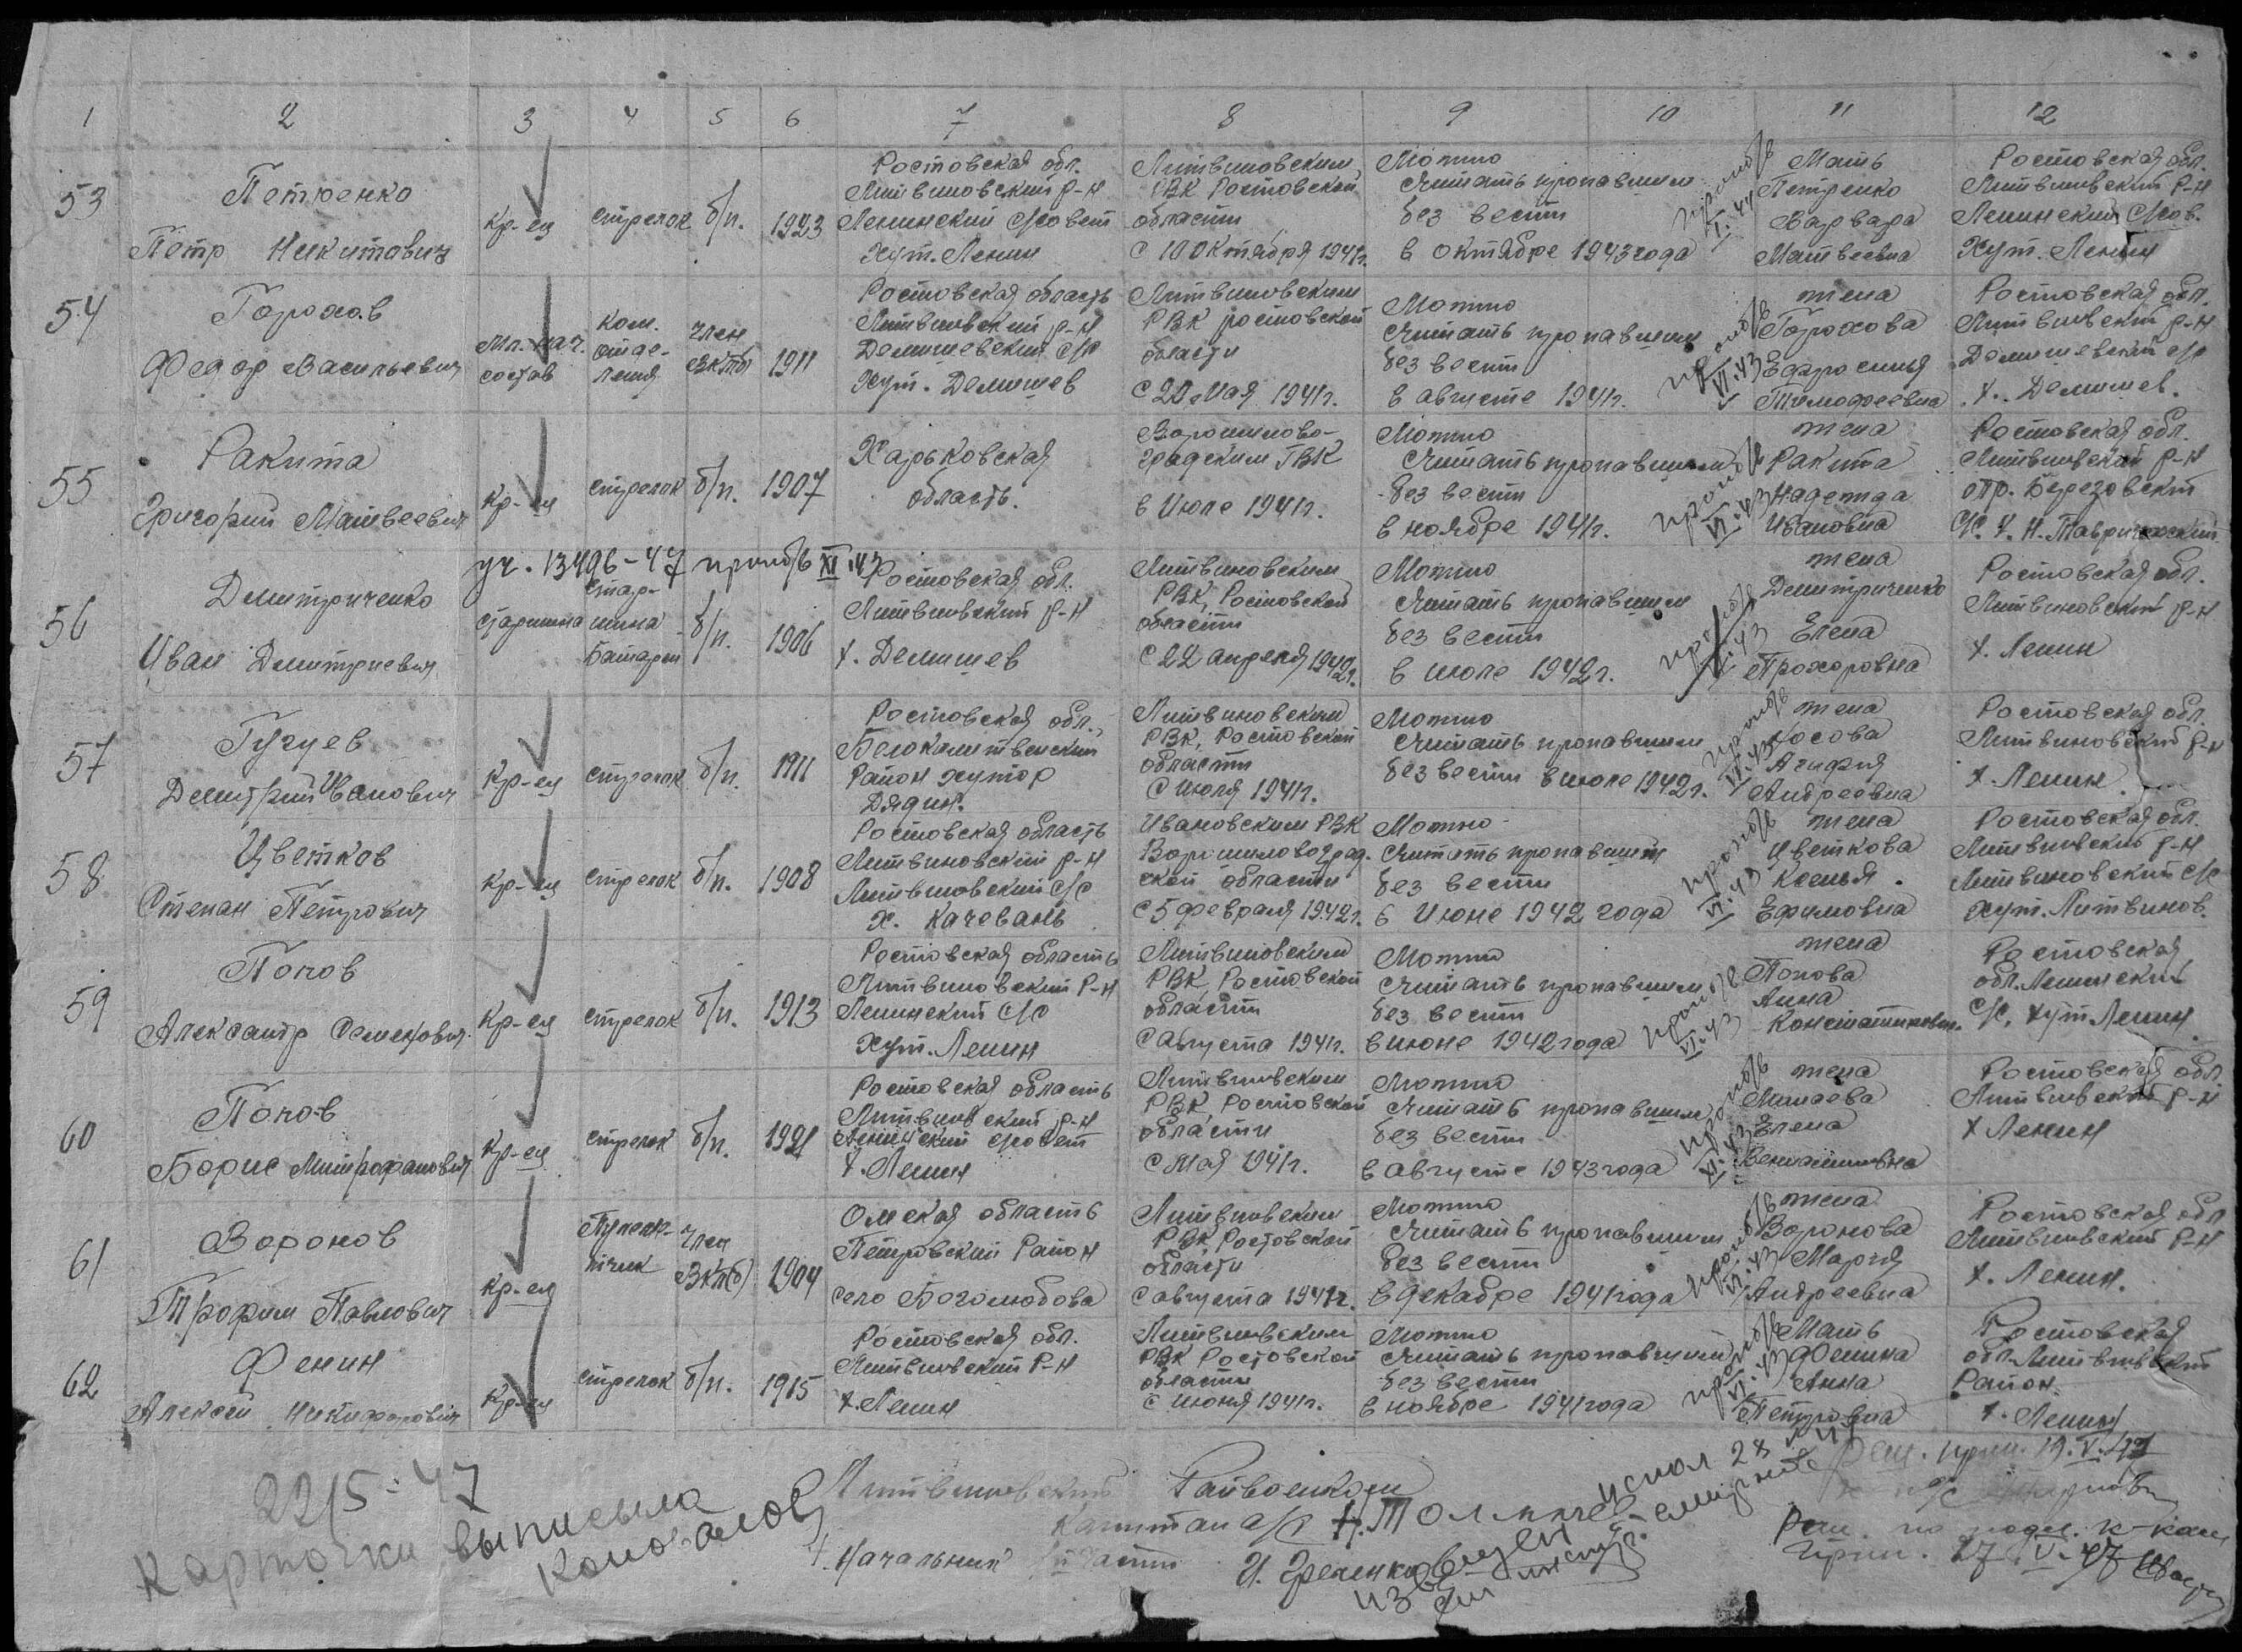 1 2 3 4 5 6 7 8 9 10 11 12
53
Петренко
Пётр Никитович
кр-ец
стрелок
б/п.
1923
Ростовская обл.
Литвиновский р-н
Ленинский с/совет
Хут. Ленин
Литвиновским
РВК Ростовской
области
с 10 Октября 1941г.
Можно
считать пропавшим
без вести
в октябре 1943 года
проп б/в
Мать
Петренко
Варвара
Матвеевна
Ростовская обл.
Литвиновский р-н
Ленинский с/сов.
Хут. Ленин
54
Горохов
Федор Васильевич
Мл. нач.
состав
ком.
отде-
ления
член
ВКПб
1911
Ростовская область
Литвиновский р-н
Демишевский с/с
Хут. Демишев
Литвиновским
РВК ростовской
области
с 20 мая 1941г.
Можно
считать пропавшим
без вести
в августе 1941г.
проп б/в
VI.43
жена
Горохова
Ефросинья
Тимофеевна
Ростовская обл.
Литвиновский р-н
Демишевский с/с
х. Демишев.
55
Ракита
Григорий Матвеевич
кр-ец
стрелок
б/п.
1907
Харьковская
область.
Ворошилово-
градским ГВК
в Июле 1941г.
Можно
считать пропавшим
без вести
в ноябре 1941г.
проп б/в
VI.43
жена
Ракита
Надежда
Ивановна
Ростовская обл.
Литвиновский р-н
отр. Березовский
с/с. х. Н.-Таврический
уч. 13496-47 проп б/в XI.43
56
Демитриченко
Иван Демитриевич
старшина
стар-
шина
Батареи
б/п.
1906
Ростовская обл.
Литвиновский р-н
х. Демишев
Литвиновским
РВК, Ростовской
области
с 22 апреля 1942г.
Можно
считать пропавшим
без вести
в июле 1942г.
жена
Демитриченко
Елена
Прохоровна
Ростовская обл.
Литвиновский р-н
х. Ленин
57
Гугуев
Демитрий Иванович
кр-ец
стрелок
б/п.
1911
Ростовская обл.,
Белокалитвенский
Район хутор
Дядин.
Литвиновским
РВК, Ростовской
области
с Июля 1941г.
Можно
считать пропавшим
без вести в июле 1942г.
проп б/в
VI.43
жена
Косова
Агифия
Андреевна
Ростовская обл.
Литвиновский р-н
х. Ленин
58
Цветков
Степан Петрович
кр-ец
стрелок
б/п.
1908
Ростовская область
Литвиновский р-н
Литвиновский с/с
х. Качевань
Ивановским РВК
Ворошиловоград-
ской области
с 5 февраля 1942г.
Можно
считать пропавшим
без вести
в Июне 1942 года
проп б/в
VI.43
жена
Цветкова
Ксенья
Ефимовна
Ростовская обл.
Литвиновский р-н
Литвиновский с/с
хут. Литвинов.
59
Попов
Александр Семенович
кр-ец
стрелок
б/п.
1913
Ростовская область
Литвиновский р-н
Ленинский с/с
Хут. Ленин
Литвиновским
РВК, Ростовской
области
с августа 1941г.
Можно
считать пропавшим
без вести
в июне 1942 года
проп б/в
VI.43
жена
Попова
Анна
Константиновна
Ростовская
обл. Ленинский
с/с, хут Ленин
60
Попов
Борис Митрофанович
кр-ец
стрелок
б/п.
1921
Ростовская область
Литвиновский р-н
Ленинский с/совет
х. Ленин
Литвиновским
РВК, Ростовской
области
с мая 1941г.
Можно
считать пропавшим
без вести
в августе 1943 года
проп б/в
XI.43
жена
Минаева
Елена
Вениаминовна
Ростовская обл
Литвиновский р-н
х Ленин
61
Воронов
Трофим Павлович
кр-ец
Пулемет-
чик
член
ВКП(б)
1904
Омская область
Петровский Район
село Боголюбова
Литвиновским
РВК, Ростовской
области
с августа 1941г.
Можно
считать пропавшим
без вести
в декабре 1941 года
проп б/в
VI.43
жена
Воронова
Мария
Андреевна
Ростовская обл
Литвиновский р-н
х. Ленин.
62
Фенин
Алексей Никифорович
кр-ец
стрелок
б/п.
1915
Ростовская обл.
Литвиновский р-н
х. Ленин
Литвиновским
РВК Ростовской
области
с июня 1941г.
Можно
считать пропавшим
без вести
в ноябре 1941 года
проп б/в
VI.43
Мать
Фенина
Анна
Петровна
Ростовская
обл. Литвиновский
Район.
х. Ленин
22/5-47
карточки выписыла
Коновалов
Литвиновский Райвоенком
Капитан а/с
Начальник части
испол 28
извещен
инспект.
19.V.47
27.V.47